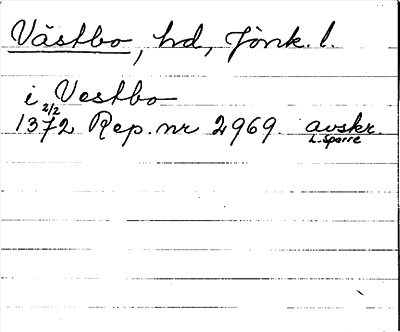 Västbo, hd, Jönk. l.
i Vestbo
1372 2/2 Rep. nr 2969 avskr.
L. Sparre